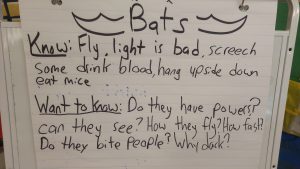 Bats
Know: Fly, light is bad, screech
some drink blood, hang upside down
eat mice
Want to Know: Do they have powers?
can they see? How they fly? How fast?
Do they bite people? Why dark?